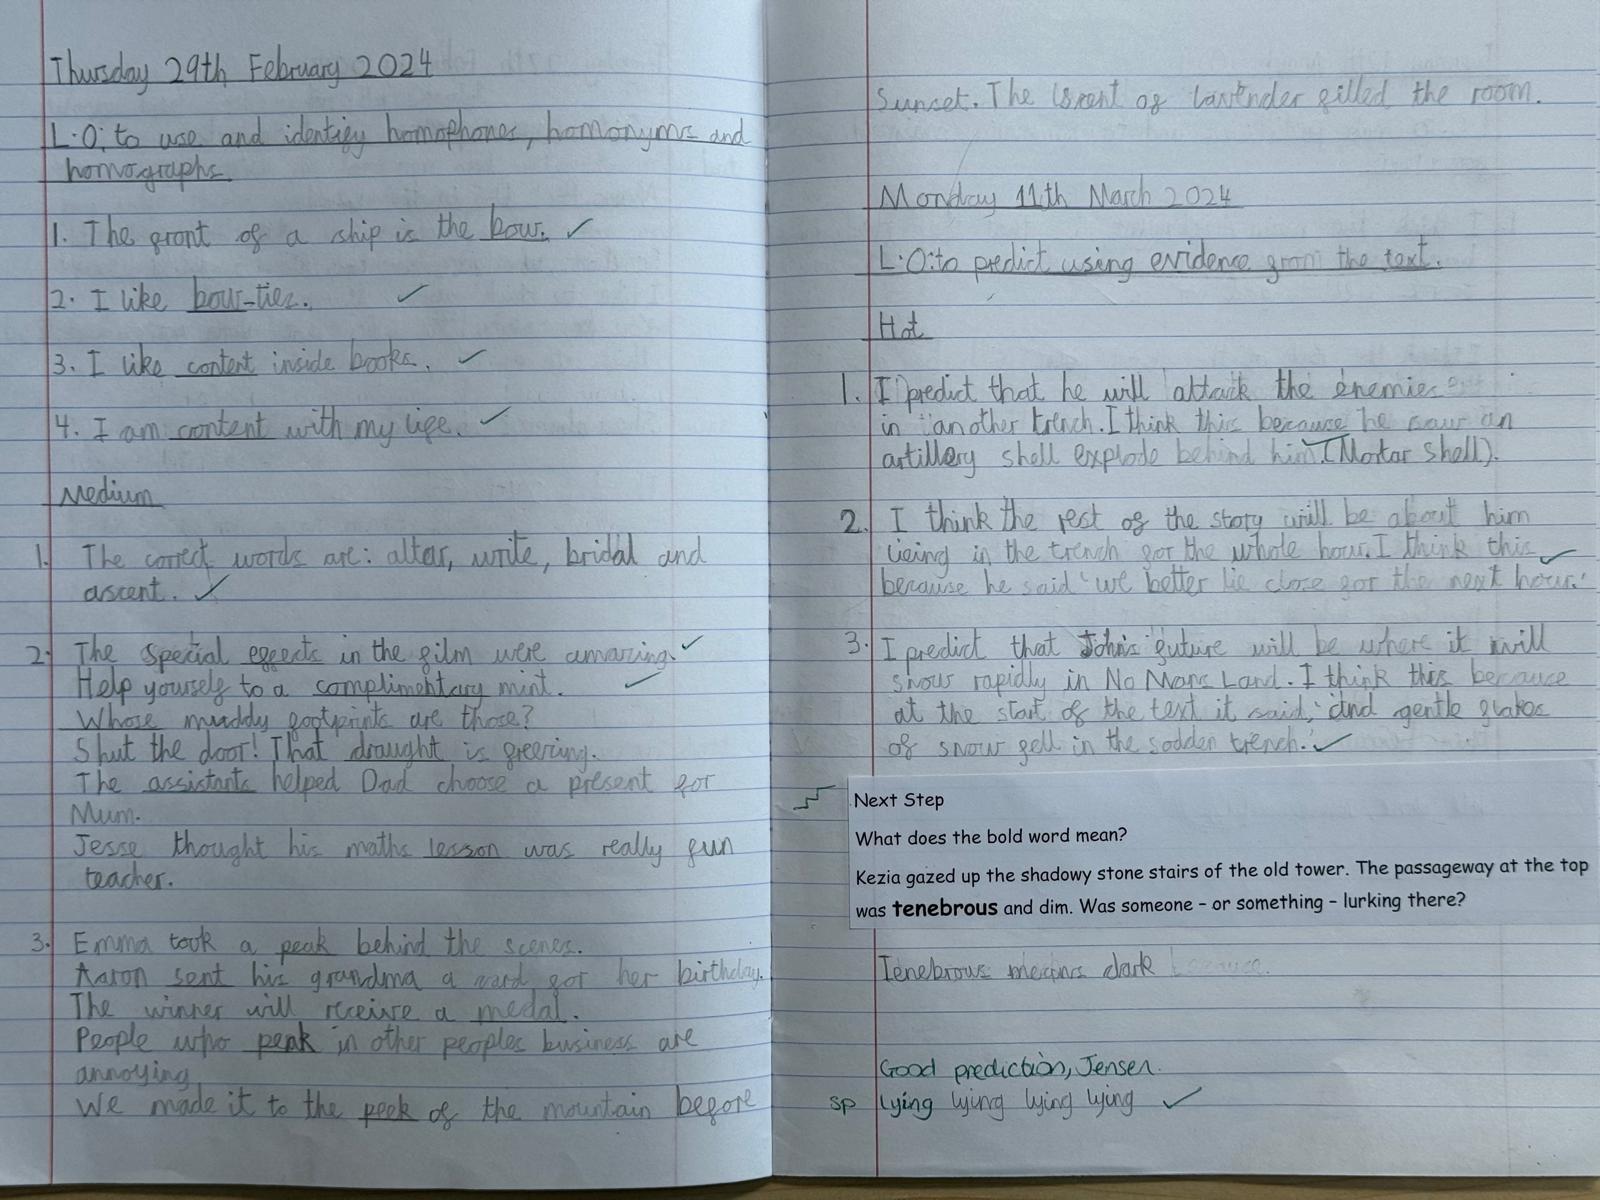 Thursday 29th February 2024
L.O: to use and identify homophones, homonyms and
homographs.
1. The front of a ship is the bow.
2. I like bow-ties.
3. I like content inside books.
4. I am content with my life.
Medium
1. The correct words are: altar, write, bridal and
ascent.
2. The special effects in the film were amazing.
Help yourself to a complimentary mint.
Whose muddy footprints are those?
Shut the door! That draught is freezing.
The assistants helped Dad choose a present for
Mum.
Jesse thought his maths lesson was really fun
teacher.
3. Emma took a peak behind the scenes.
Aaron sent his grandma a card for her birthday.
The winner will receive a medal.
People who peak in other peoples business are
annoying
We made it to the peek of the mountain before
Sunset. The scent of lavender filled the room.
Monday 11th March 2024
L.O: to predict using evidence from the text.
Hot
1. I predict that he will attack the enemies
in another trench. I think this because he saw an
artillery shell explode behind him (Mortar Shell).
2. I think the rest of the story will be about him
lieing in the trench for the whole hour. I think this
because he said 'we better lie close for the next hour.'
3. I predict that John's future will be where it will
snow rapidly in No Mans Land. I think this because
at the start of the text it said, 'and gentle flakes
of snow fell in the sodden trench.'
Next Step
What does the bold word mean?
Kezia gazed up the shadowy stone stairs of the old tower. The passageway at the top
was tenebrous and dim. Was someone – or something – lurking there?
Tenebrous means dark
Good prediction, Jensen.
sp lying lying lying lying